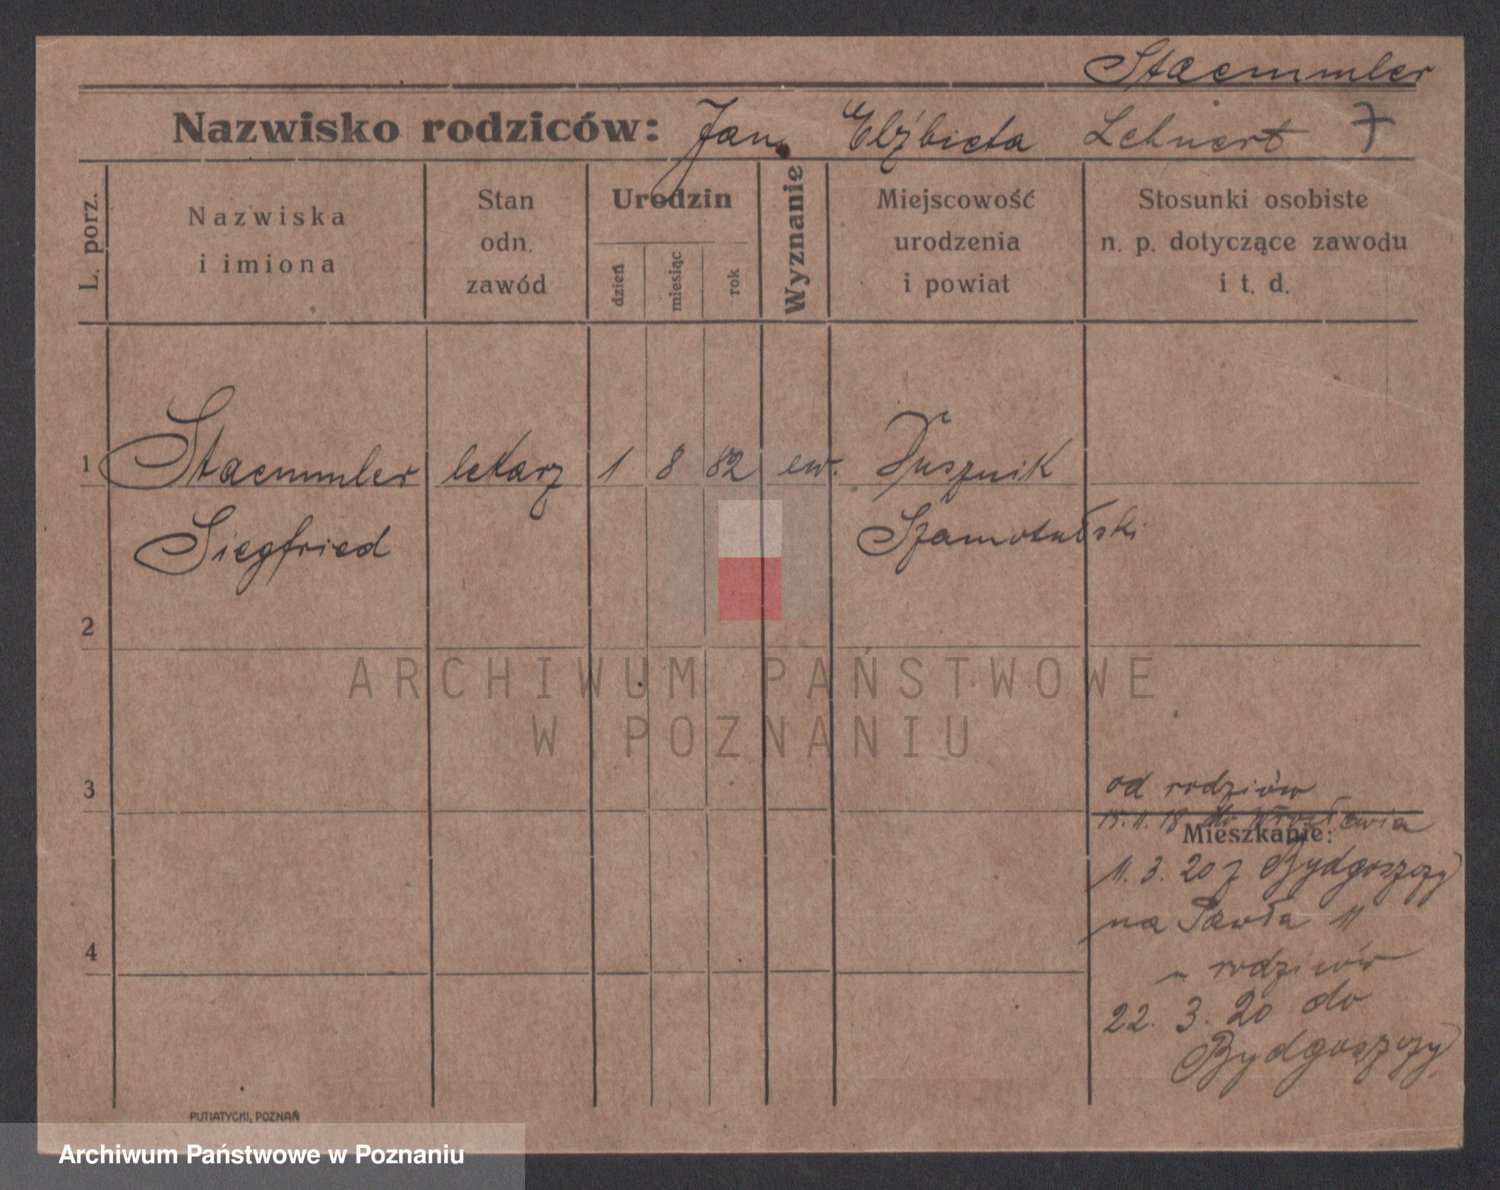 Staemmler
Nazwisko rodziców: Jan Elżbieta Lehnert 7
L. porz.
Nazwiska
i imiona
Stan
odn.
zawód
Urodzin
dzień
miesiąc
rok
Wyznanie
Miejscowość
urodzenia
i powiat
Stosunki osobiste
n. p. dotyczące zawodu
i t. d.
1 Staemmler lekarz 1 8 82 ew. Dusznik
Siegfried Szamotulski
2
ARCHIWUM PAŃSTWOWE
W POZNANIU
3
od rodziców
15.11.18 do
Mieszkanie:
11. 3. 20 z Bydgoszczy
na Pawła 11
4
rodziców
22. 3. 20 do
Bydgoszczy
PUTIATYCKI, POZNAŃ
Archiwum Państwowe w Poznaniu